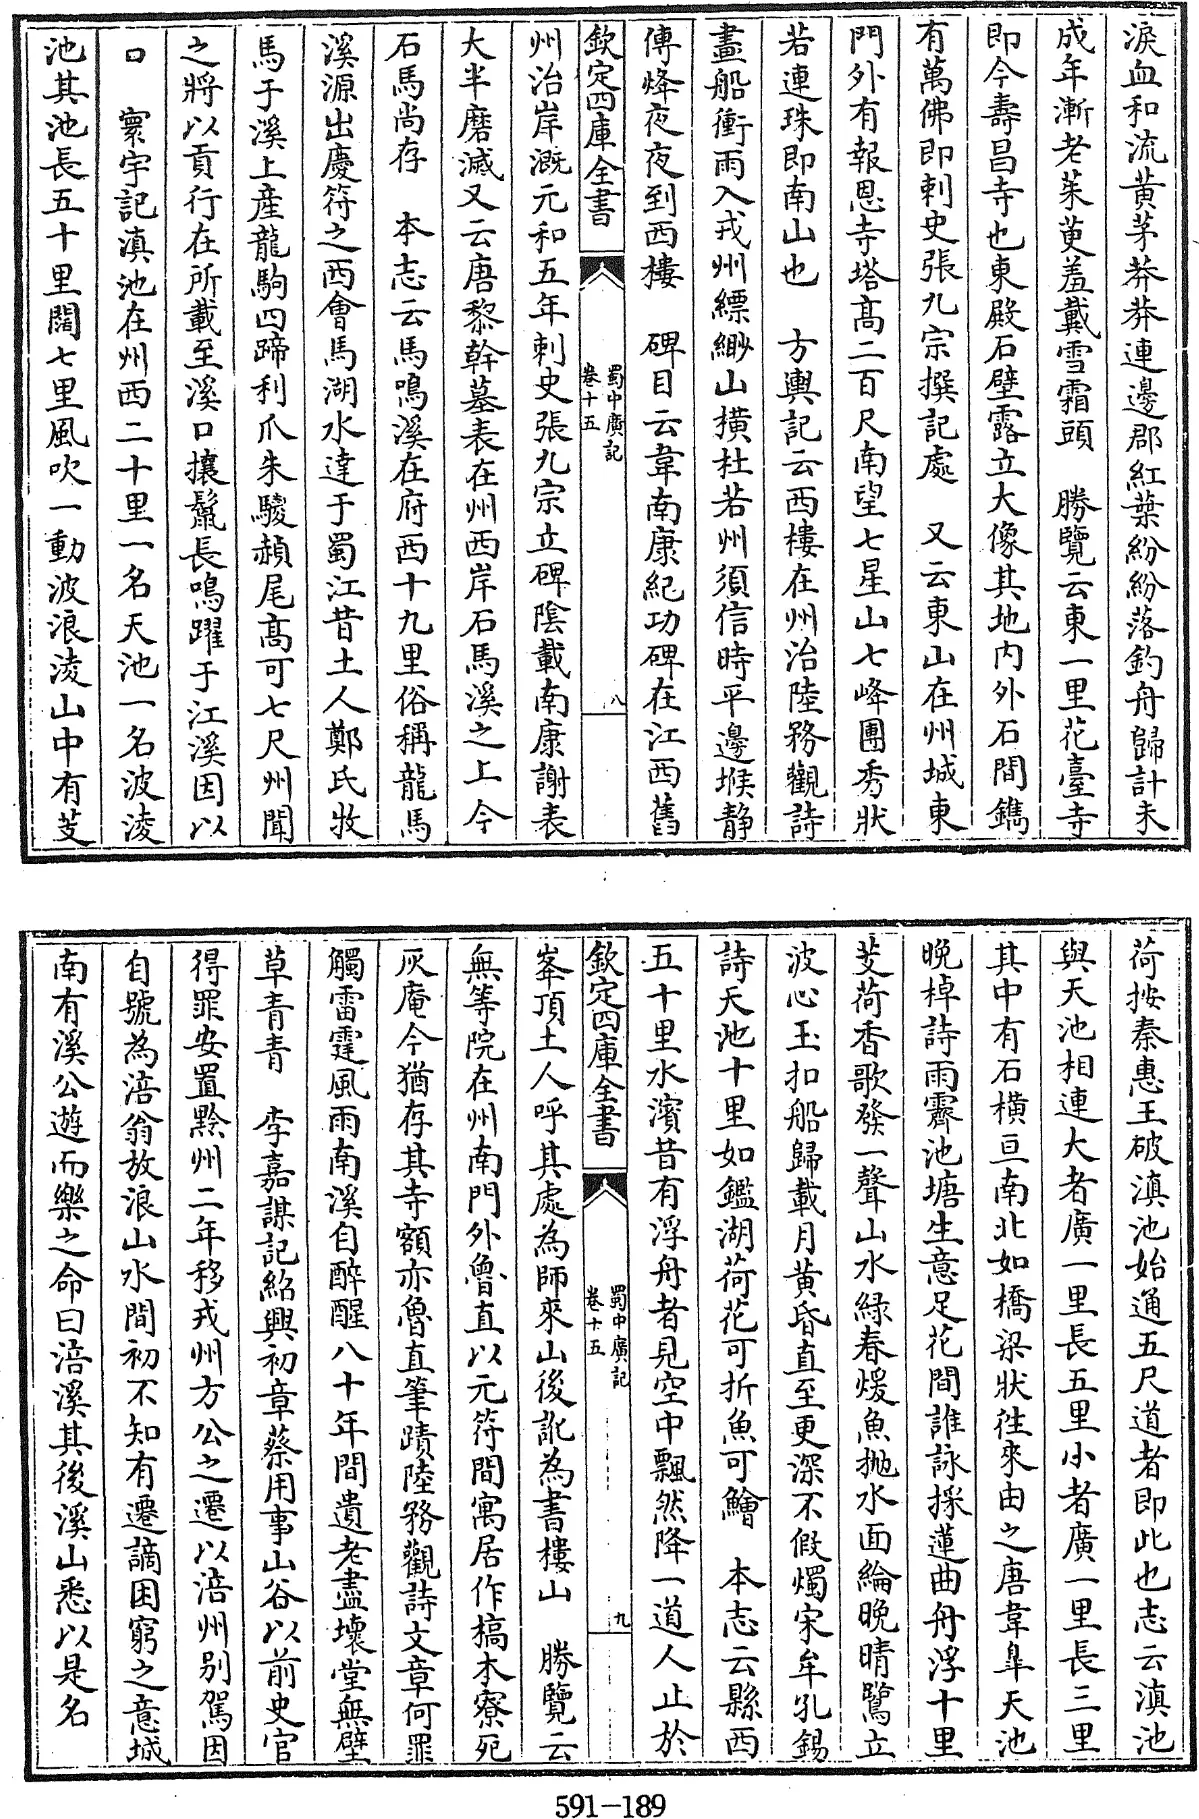 淚血和流黃茅莽莽連邊郡紅葉紛紛落釣舟歸計未
成年漸老茱萸羞戴雪霜頭　勝覽云東一里花臺寺
即今壽昌寺也東殿石壁露立大像其地内外石間鐫
有萬佛即刺史張九宗撰記處　又云東山在州城東
門外有報恩寺塔高二百尺南望七星山七峰團秀狀
若連珠即南山也　方輿記云西樓在州治陸務觀詩
畫船衝雨入戎州縹緲山横杜若州須信時平邊堠静
傳烽夜夜到西樓　碑目云韋南康紀功碑在江西舊
欽定四庫全書
蜀中廣記
卷十五
八
州治岸溉元和五年刺史張九宗立碑陰載南康謝表
大半磨滅又云唐黎幹墓表在州西岸石馬溪之上今
石馬尚存　本志云馬鳴溪在府西十九里俗稱龍馬
溪源出慶符之西會馬湖水達于蜀江昔土人鄭氏牧
馬于溪上產龍駒四蹄利爪朱騣赬尾高可七尺州聞
之將以貢行在所載至溪口攘鬣長鳴躍于江溪因以
口　寰宇記滇池在州西二十里一名天池一名波凌
池其池長五十里闊七里風吹一動波浪淩山中有芰
荷按秦惠王破滇池始通五尺道者即此也志云滇池
與天池相連大者廣一里長五里小者廣一里長三里
其中有石横亘南北如橋梁狀徃來由之唐韋臯天池
晚棹詩雨霽池塘生意足花間誰詠採蓮曲舟浮十里
芰荷香歌發一聲山水綠春煖魚抛水面綸晚晴鷺立
波心玉扣船歸載月黃昏直至更深不假燭宋牟孔錫
詩天池十里如鑑湖荷花可折魚可鱠　本志云縣西
五十里水濱昔有浮舟者見空中飄然降一道人止於
欽定四庫全書
蜀中廣記
卷十五
九
峯頂土人呼其處為師來山後訛為書樓山　勝覽云
無等院在州南門外魯直以元符間寓居作槁木寮死
灰庵今猶存其寺額亦魯直筆蹟陸務觀詩文章何罪
觸雷霆風雨南溪自醉醒八十年間遺老盡壞堂無壁
草青青　李嘉謀記紹興初章蔡用事山谷以前史官
得罪安置黔州二年移戎州方公之遷以涪州别駕因
自號為涪翁放浪山水間初不知有遷謫困窮之意城
南有溪公遊而樂之命曰涪溪其後溪山悉以是名
591-189